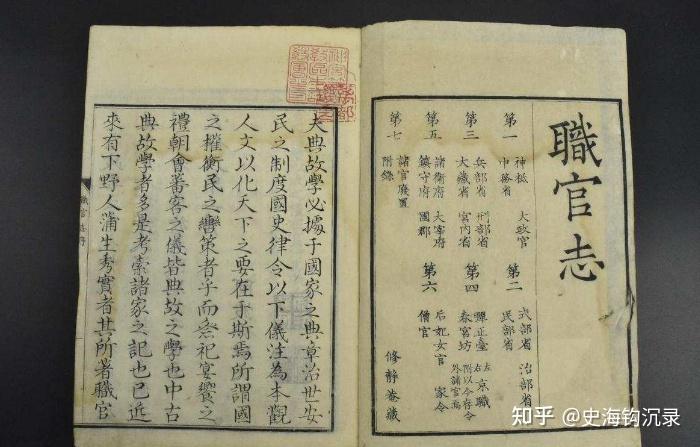 職官志
第一
神祇 大政官
中務省
第二
式部省 治部省
民部省
第三
兵部省 刑部省
大藏省 宮内省
第四
彈正臺 左右京職
春宮坊 附以令存令外諸官
第五
諸衛府 大宰府
鎮守府 國郡
第六
后妃女官 家令
僧官
第七
諸官廢置
附錄
修靜菴藏
夫典故學必據于國家之典章治世安
民之制度國史律令以下儀注為本觀
人文以化天下之要在于斯焉所謂國
之權衡民之轡策者乎而祭祀宴饗之
禮朝會蕃客之儀皆典故之學也中古
典故學者多是考索諸家之記也已近
來有下野人蒲生秀實者其所著職官
職官志序
知乎 @史海钩沉录